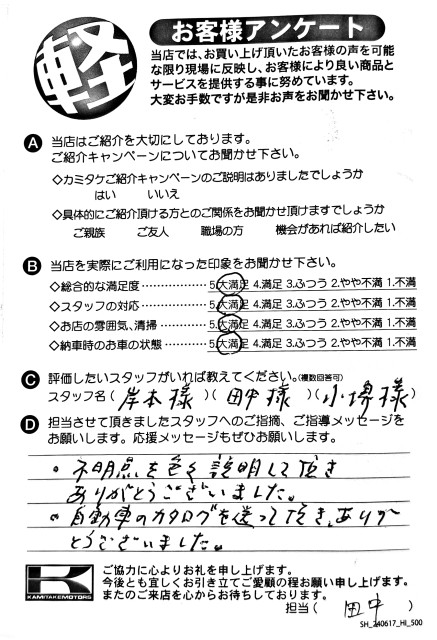 軽
お客様アンケート
当店では、お買い上げ頂いたお客様の声を可能
な限り現場に反映し、お客様により良い商品と
サービスを提供する事に努めています。
大変お手数ですが是非お声をお聞かせ下さい。
A 当店はご紹介を大切にしております。
ご紹介キャンペーンについてお聞かせ下さい。
◇カミタケご紹介キャンペーンのご説明はありましたでしょうか
はい いいえ
◇具体的にご紹介頂ける方とのご関係をお聞かせ頂けますでしょうか
ご親族 ご友人 職場の方 機会があれば紹介したい
B 当店を実際にご利用になった印象をお聞かせ下さい。
◇総合的な満足度 ……………… 5.大満足 4.満足 3.ふつう 2.やや不満 1.不満
◇スタッフの対応 ……………… 5.大満足 4.満足 3.ふつう 2.やや不満 1.不満
◇お店の雰囲気、清掃 ………… 5.大満足 4.満足 3.ふつう 2.やや不満 1.不満
◇納車時のお車の状態 ………… 5.大満足 4.満足 3.ふつう 2.やや不満 1.不満
C 評価したいスタッフがいれば教えてください。(複数回答可)
スタッフ名 ( 岸本様 )( 田中様 )( 小堺様 )
D 担当させて頂きましたスタッフへのご指摘、ご指導メッセージを
お願いします。応援メッセージもぜひお願いします。
。不明点を色々説明して頂き
ありがとうございました。
。自動車のカタログを送って頂き、ありが
とうございました。
KAMITAKEMOTORS
ご協力に心よりお礼を申し上げます。
今後とも宜しくお引き立てご愛顧の程お願い申し上げます。
またのご来店を心からお待ちしております。
担当 ( 田中 )
SH_240617_HI_500